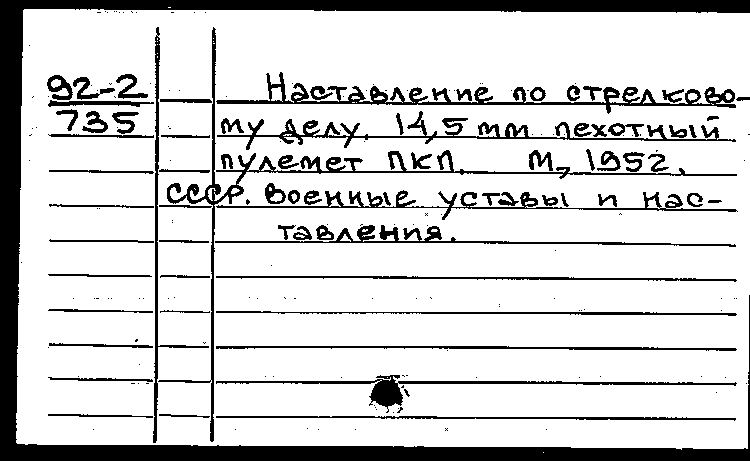 92-2
735
Наставление по стрелково-
му делу. 14,5 мм пехотный
пулемет ПКП. М., 1952.
СССР. Военные уставы и нас-
тавления.